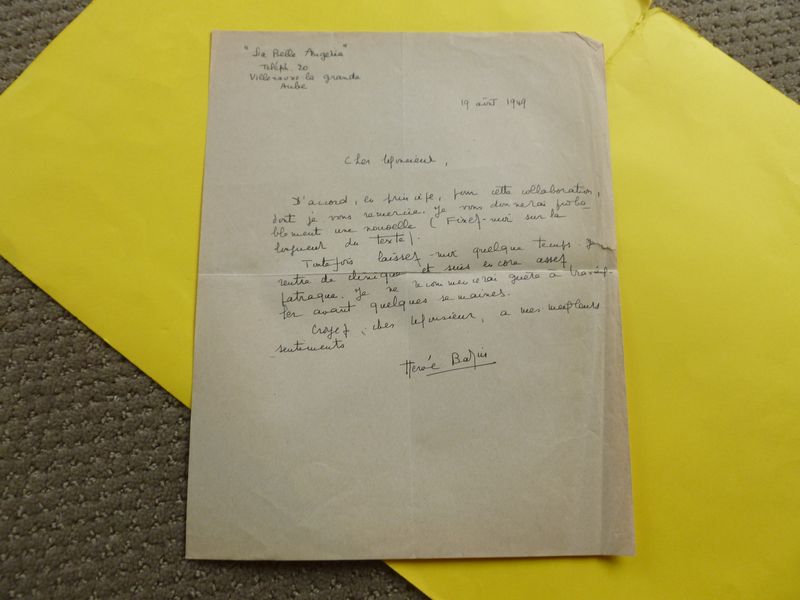 "La Belle Angerie"
Teléph. 20
Villenauxe la grande
Aube
19 août 1949
Cher Monsieur,
D'accord, en principe, pour cette collaboration,
dont je vous remercie. Je vous donnerai proba-
blement une nouvelle (Fixez-moi sur la
longueur du texte).
Toutefois laissez-moi quelque temps. Je
rentre de clinique et suis encore assez
patraque. Je ne recommencerai guère à travail-
ler avant quelques semaines.
Croyez, cher Monsieur, à mes meilleurs
sentiments
Hervé Bazin